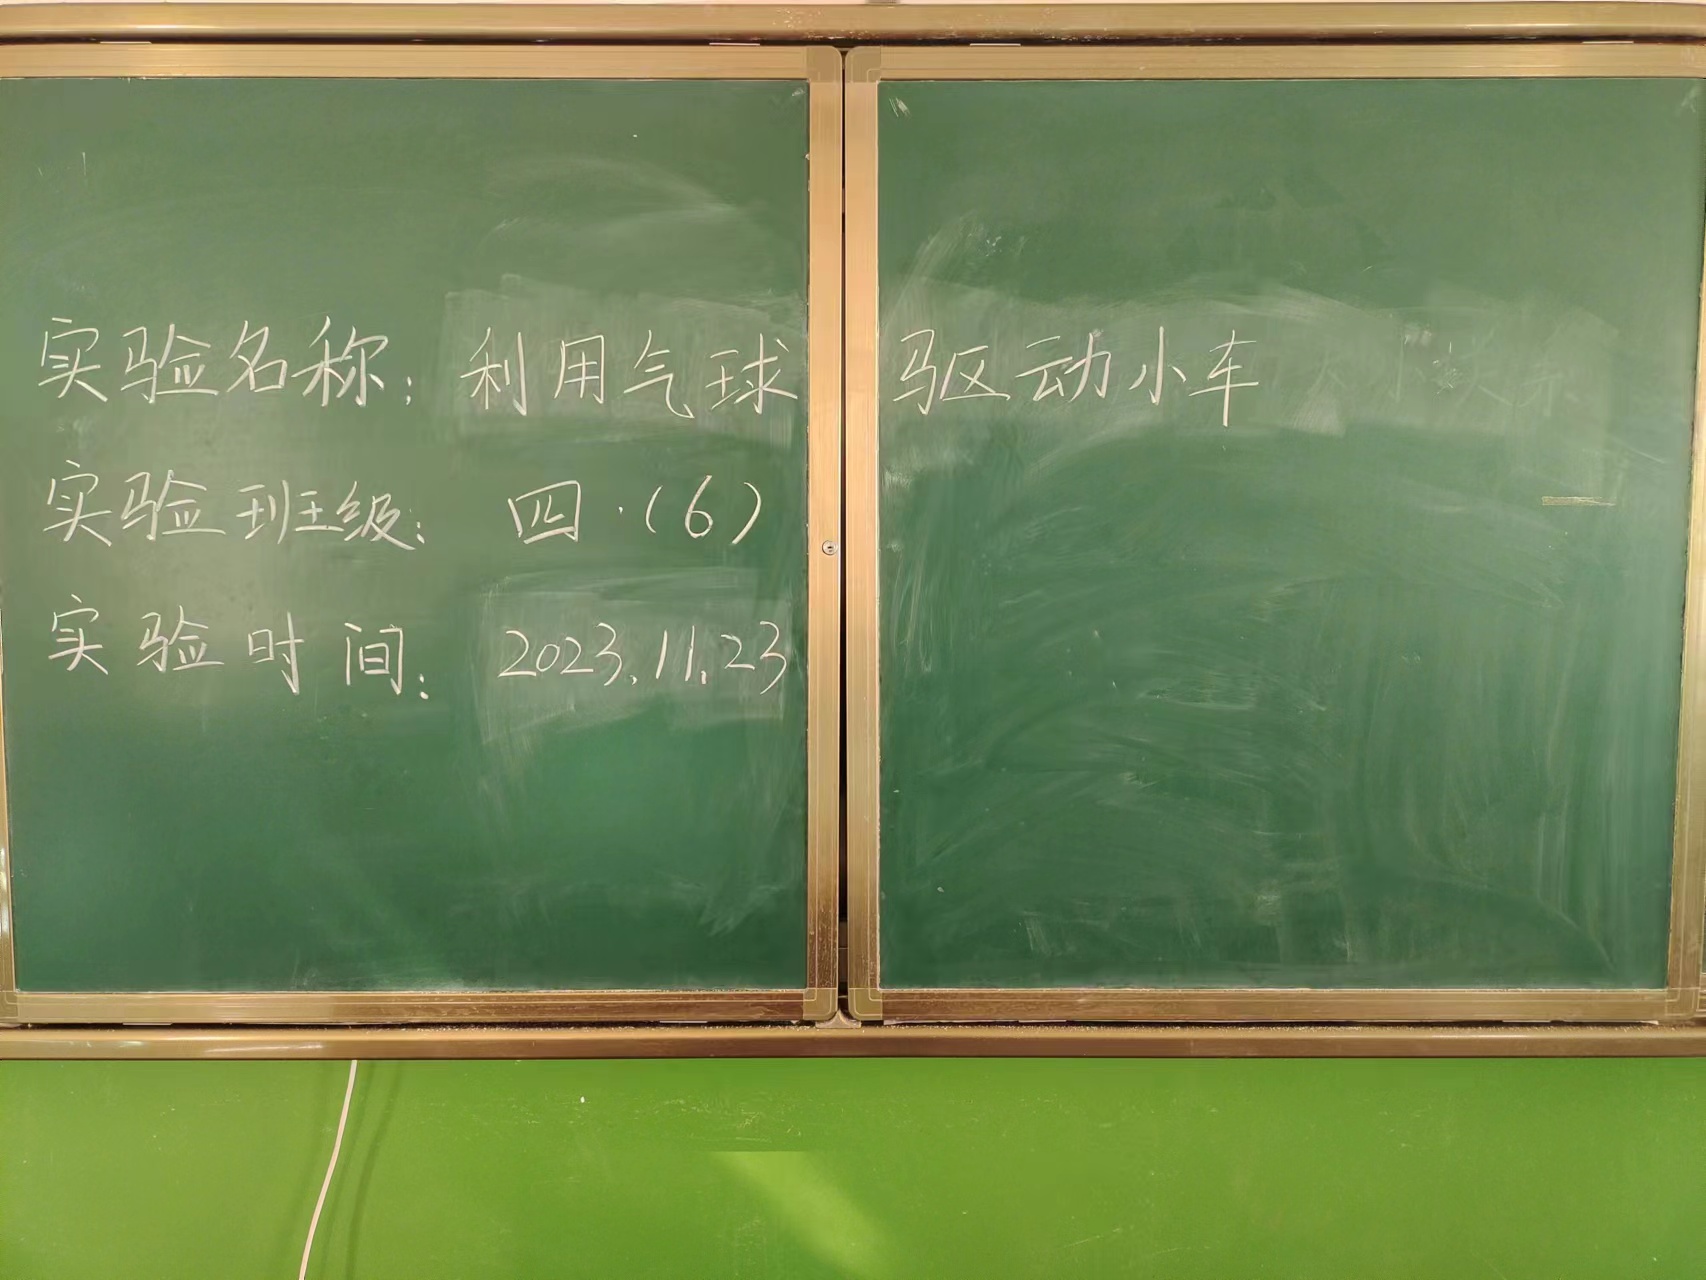 实验名称：利用气球驱动小车
实验班级：四·（6）
实验时间：2023.11.23